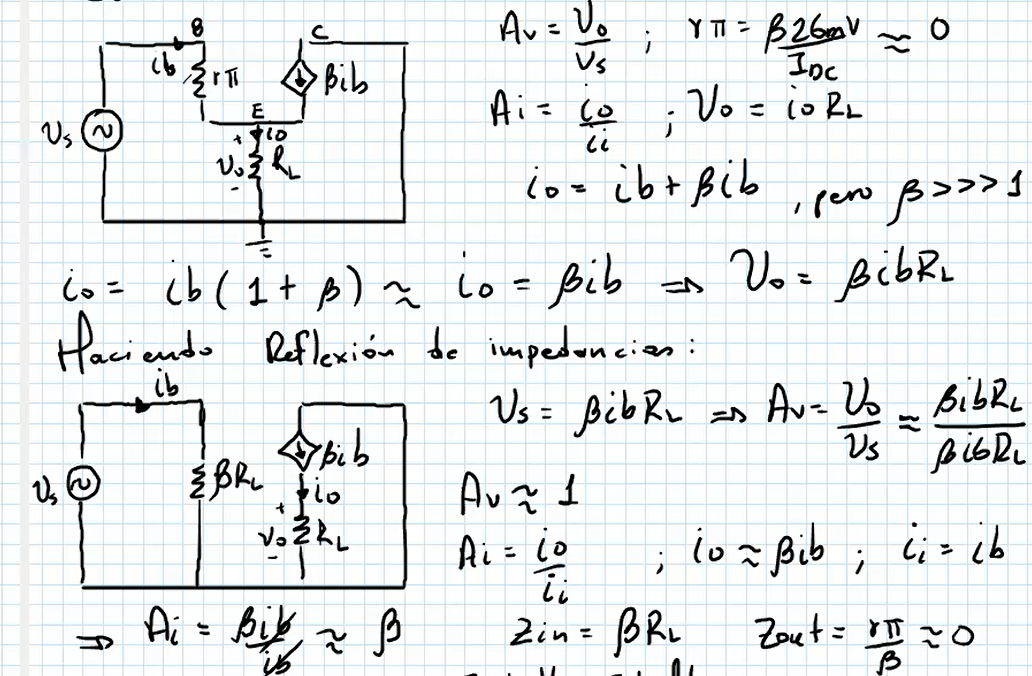 B
C
ib
rπ
βib
E
io
Vs
+
Vo
RL
-
Av = Vo/Vs ; rπ = β26mV/IDC ≈ 0
Ai = io/ii ; Vo = ioRL
io = ib + βib , pero β>>>1
io = ib(1 + β) ≈ io = βib ⇒ Vo = βibRL
Haciendo Reflexión de impedancias:
ib
Vs
βRL
βib
io
+
Vo
RL
-
Vs = βibRL ⇒ Av = Vo/Vs ≈ βibRL/βibRL
Av ≈ 1
Ai = io/ii ; io ≈ βib ; ii = ib
⇒ Ai = βib/ib ≈ β
Zin = βRL Zout = rπ/β ≈ 0